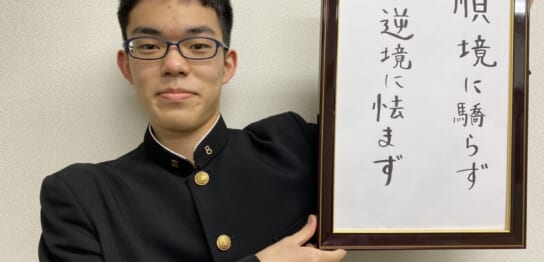 順境に驕らず
逆境に怯まず
8